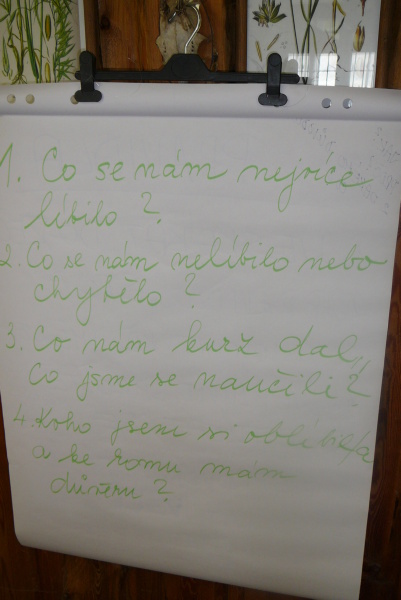 1. Co se nám nejvíce
líbilo ?
2. Co se nám nelíbilo nebo
chybělo ?
3. Co nám kurz dal,,
Co jsme se naučili?
4. Koho jsem si oblíbil/a
a ke komu mám
důvěru ?